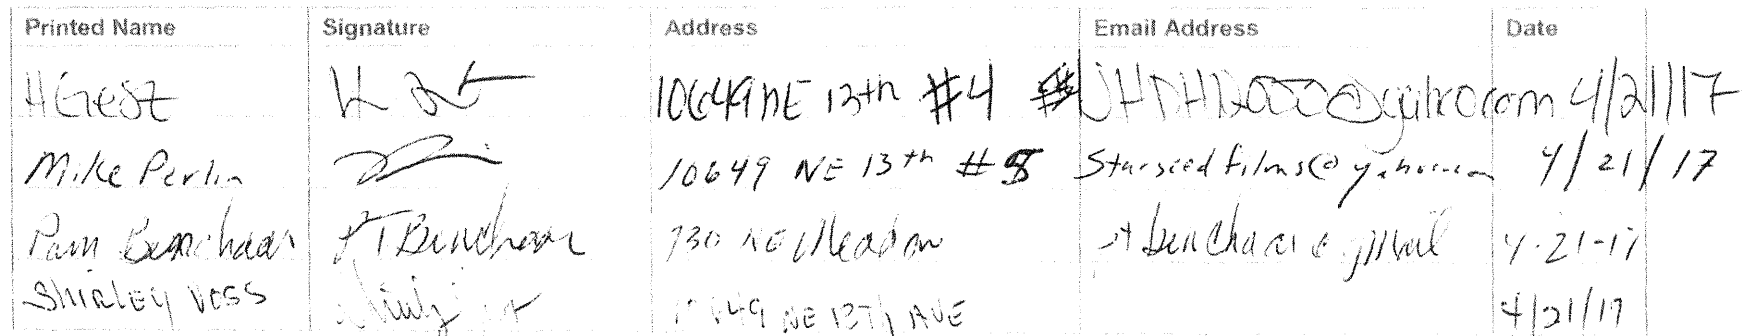 Printed Name Signature Address Email Address Date
H Gest 10649 NE 13th #4 @yahoo.com 4/21/17
Mike Perlin 10649 NE 13th #5 Starseedfilms@yahoo.com 4/21/17
Pam 730 NE Meadow 4-21-17
Shirley Voss 10649 NE 13th AVE 4/21/17